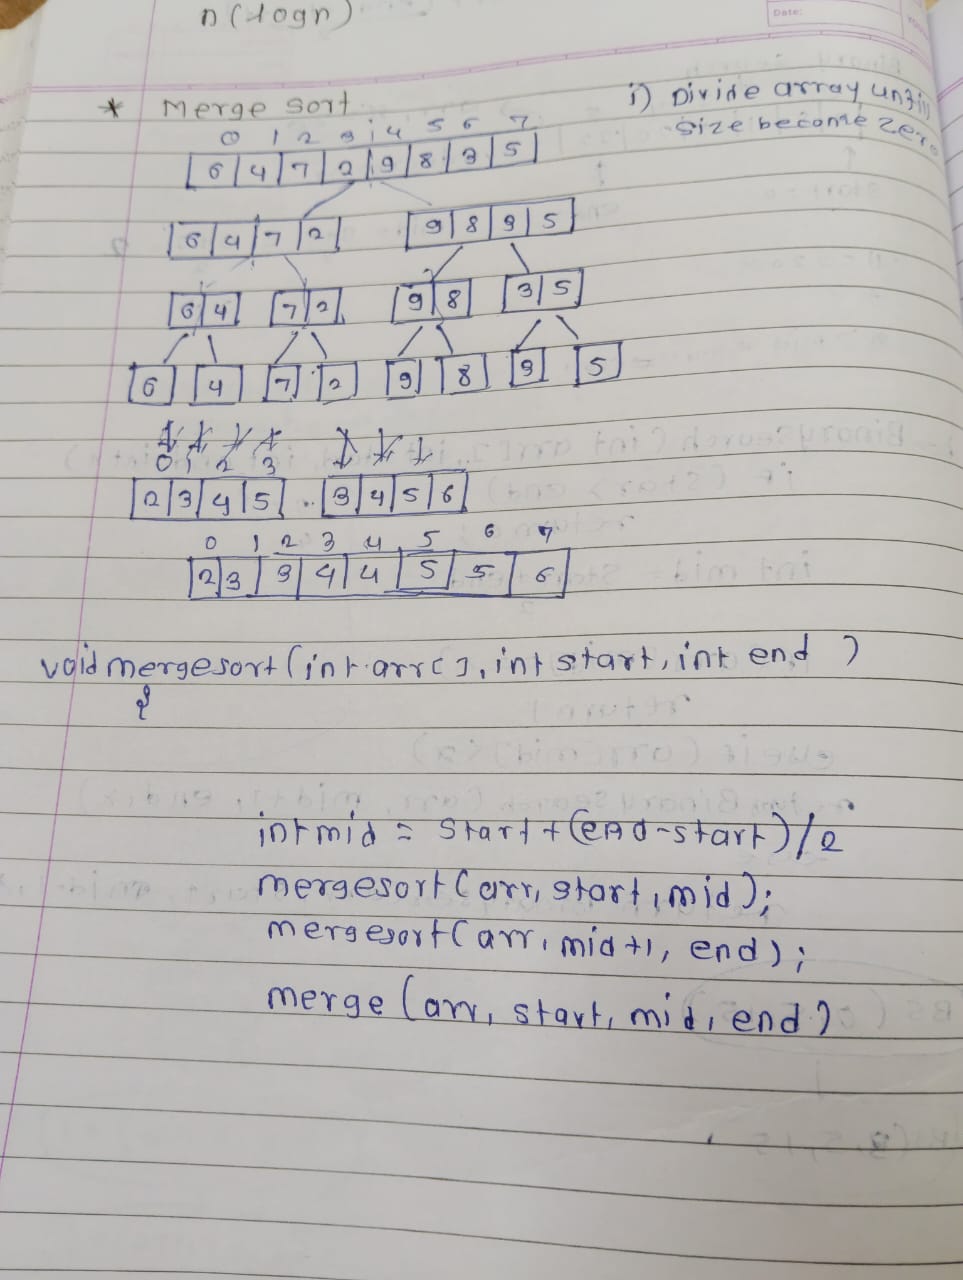 n(logn)
Date:
* Merge sort
i) Divide array untill
size become zero
0 1 2 3 4 5 6 7
6 4 7 2 9 8 3 5
6 4 7 2 9 8 3 5
6 4 7 2 9 8 3 5
6 4 7 2 9 8 3 5
0 1 2 3
2 3 4 5 .. 3 4 5 6
0 1 2 3 4 5 6 7
2 3 3 4 4 5 5 6
void mergesort(int arr[], int start, int end )
{
int mid = start + (end-start)/2
mergesort(arr, start, mid);
mergesort(arr, mid+1, end);
merge (arr, start, mid, end)